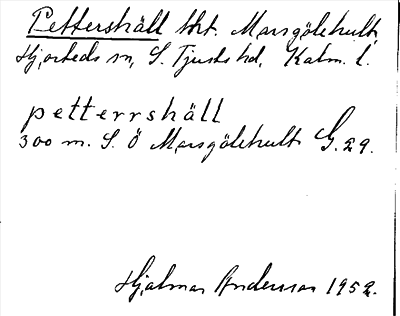 Pettershäll tht. Marsgölehult,
Hjorteds sn, S. Tjusts hd, Kalm. l.
petterrshäll
300 m. S. Ö Marsgölehult G. 29.
Hjalmar Andersson 1952.